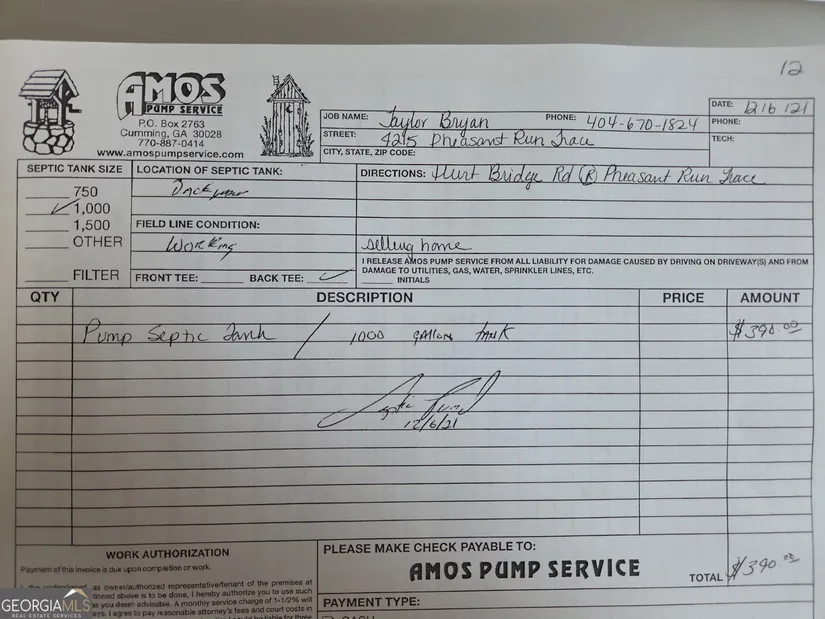 12
AMOS
PUMP SERVICE
P.O. Box 2763
Cumming, GA 30028
770-887-0414
www.amospumpservice.com
JOB NAME: Taylor Bryan PHONE: 404-670-1824
STREET: 4215 Pheasant Run Trace
CITY, STATE, ZIP CODE:
DATE: 12 16 121
PHONE:
TECH:
SEPTIC TANK SIZE
750
✓ 1,000
1,500
OTHER
FILTER
LOCATION OF SEPTIC TANK:
FIELD LINE CONDITION:
Working
FRONT TEE: BACK TEE: ✓
DIRECTIONS: Hurt Bridge Rd (R) Pheasant Run Trace
selling home
I RELEASE AMOS PUMP SERVICE FROM ALL LIABILITY FOR DAMAGE CAUSED BY DRIVING ON DRIVEWAY(S) AND FROM
DAMAGE TO UTILITIES, GAS, WATER, SPRINKLER LINES, ETC.
INITIALS
QTY DESCRIPTION PRICE AMOUNT
Pump Septic Tank / 1000 gallon tank $390.00
12/6/21
WORK AUTHORIZATION
Payment of this invoice is due upon completion or work.
as owner/authorized representative/tenant of the premises at
tioned above is to be done, I hereby authorize you to use such
as you deem advisable. A monthly service charge of 1-1/2% will
ays. I agree to pay reasonable attorney's fees and court costs in
PLEASE MAKE CHECK PAYABLE TO:
AMOS PUMP SERVICE
TOTAL $390.00
PAYMENT TYPE:
GEORGIAMLS
REAL ESTATE SERVICES